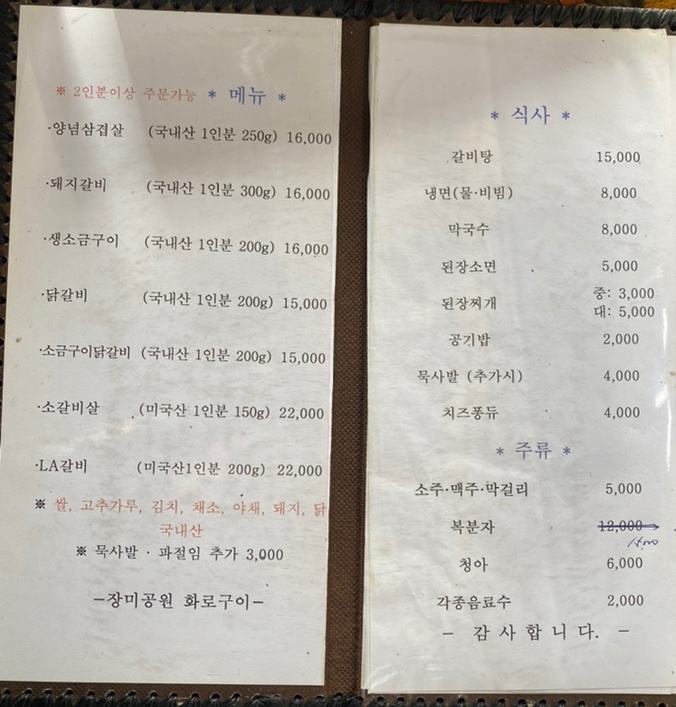 ※ 2인분이상 주문가능 * 메뉴 *
·양념삼겹살 (국내산 1인분 250g) 16,000
·돼지갈비 (국내산 1인분 300g) 16,000
·생소금구이 (국내산 1인분 200g) 16,000
·닭갈비 (국내산 1인분 200g) 15,000
·소금구이닭갈비 (국내산 1인분 200g) 15,000
·소갈비살 (미국산 1인분 150g) 22,000
·LA갈비 (미국산1인분 200g) 22,000
※ 쌀, 고추가루, 김치, 채소, 야채, 돼지, 닭
국내산
※ 묵사발 · 파절임 추가 3,000
-장미공원 화로구이-
* 식사 *
갈비탕 15,000
냉면(물·비빔) 8,000
막국수 8,000
된장소면 5,000
된장찌개 중: 3,000
대: 5,000
공기밥 2,000
묵사발 (추가시) 4,000
치즈퐁듀 4,000
* 주류 *
소주·맥주·막걸리 5,000
복분자 12,000
15,000
청아 6,000
각종음료수 2,000
- 감사합니다. -